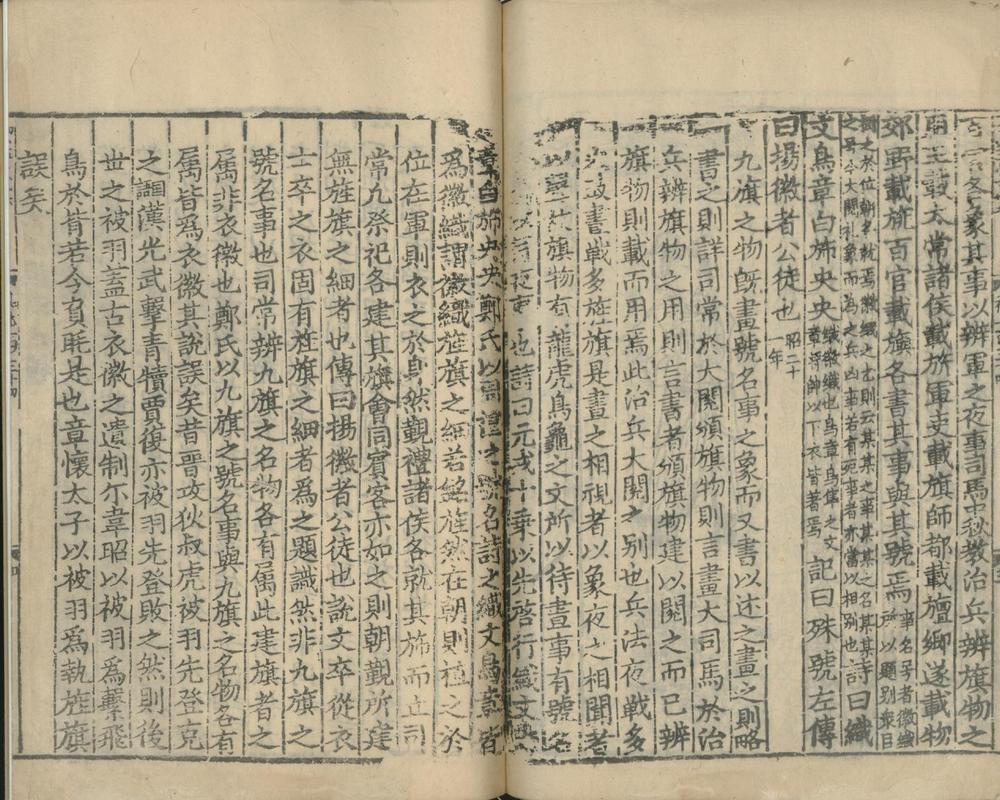 各象其事以辨軍之夜事司馬中秋教治兵辨旗物之
王載太常諸侯載旂軍吏載旗師都載旜鄉遂載物
郊野載旐百官載旟各書其事與其號焉事名号者徽織
所以題別衆臣
樹之於位朝者就焉徽織之書則云某某之事某某之名某某
之号今大閱礼象而為之兵凶事若有死事者亦當以相別也詩曰織
文鳥章白斾央央織徽織也鳥章鳥隼之文
章將帥以下衣皆著焉記曰殊號左傳
曰揚徽者公徒也昭二十
一年
九旗之物旣畫號名事之象而又書以述之畫之則略
書之則詳司常於大閱頒旗物則言畫大司馬於治
兵辨旗物之用則言書者頒旗物建以閱之而已辨
旗物則載而用焉此治兵大閱之別也兵法夜戰多
晝戰多旌旗是晝之相視者以象夜之相聞者
旗物有龍虎鳥龜之文所以待晝事有號名
夜事也詩曰元戎十乗以先啓行織文
章白斾央央鄭氏以周禮之號名詩之織文鳥章皆
爲徽織謂徽織旌旗之細若銘旌然在朝則植之於
位在軍則衣之於身然觀禮諸侯各就其斾而立司
常九祭祀各建其旗會同賓客亦如之則朝觀所建
無旌旗之細者也傳曰揚徽者公徒也說文卒從衣
士卒之衣固有旌旗之細者爲之題識然非九旗之
號名事也司常辨九旗之名物各有屬此建旗者之
屬非衣徽也鄭氏以九旗之號名事與九旗之名物各有
屬皆爲衣徽其說誤矣昔晉攻狄叔虎被羽先登克
之謂漢光武擊青犢賈復亦被羽先登敗之然則後
世之被羽蓋古衣徽之遺制尔韋昭以被羽爲繫飛
鳥於背若今負眊是也章懷太子以被羽爲執旌旗
誤矣